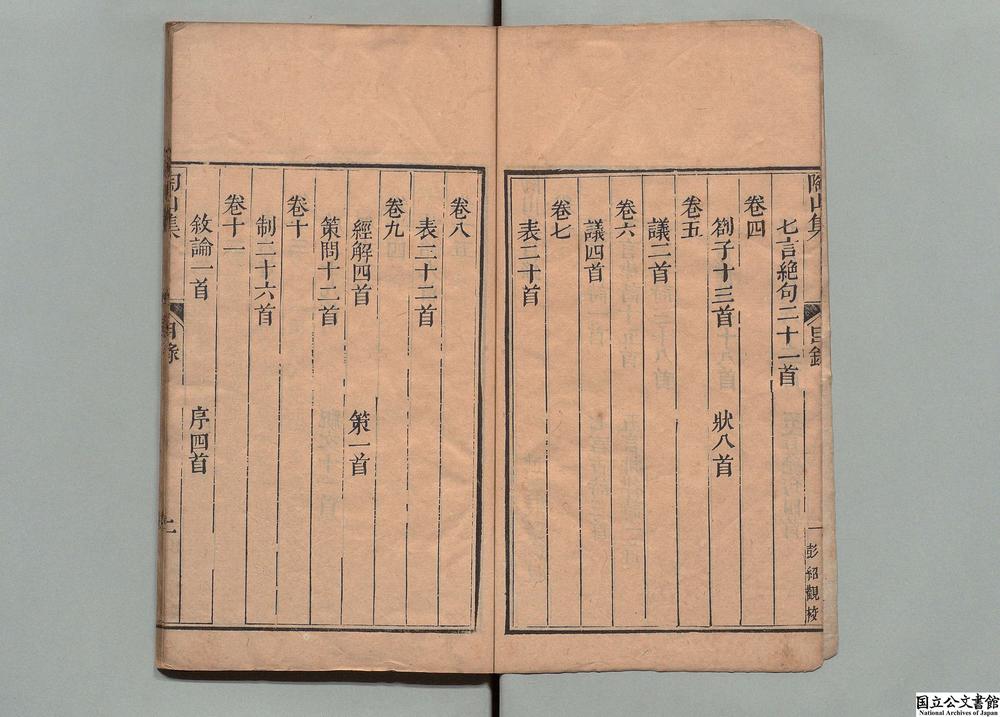 陶山集 目錄 一 彭紹觀校
七言絕句二十一首
卷四
劄子十三首 狀八首
卷五
議二首
卷六
議四首
卷七
表二十首
卷八
表三十二首
卷九
經解四首 策一首
策問十二首
卷十
制二十六首
卷十一
敘論一首 序四首
陶山集 目錄 二
国立公文書館
National Archives of Japan